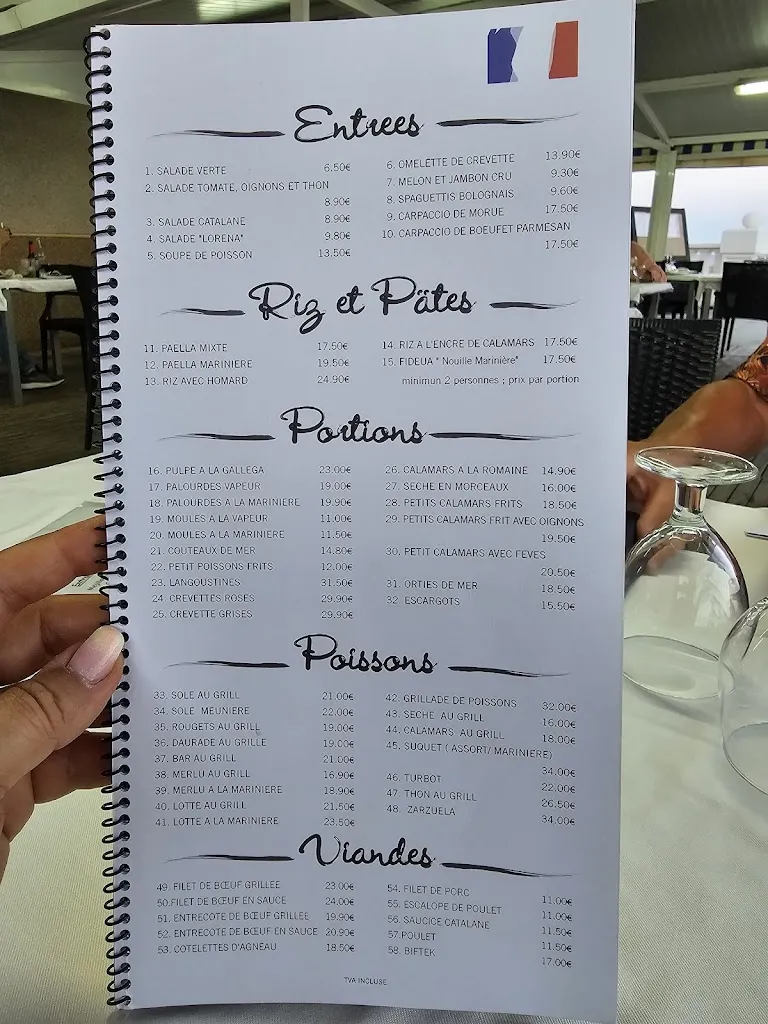 Entrees
1. SALADE VERTE 6.50€
2. SALADE TOMATE, OIGNONS ET THON
8.90€
3. SALADE CATALANE 8.90€
4. SALADE "LORENA" 9.80€
5. SOUPE DE POISSON 13,50€
6. OMELETTE DE CREVETTE 13.90€
7. MELON ET JAMBON CRU 9.30€
8. SPAGUETTIS BOLOGNAIS 9.60€
9. CARPACCIO DE MORUE 17.50€
10. CARPACCIO DE BOEUFET PARMESAN
17.50€
Riz et Pätes
11. PAELLA MIXTE 17.50€
12. PAELLA MARINIERE 19.50€
13. RIZ AVEC HOMARD 24.90€
14. RIZ A L'ENCRE DE CALAMARS 17.50€
15. FIDEUA " Nouille Marinière" 17.50€
minimun 2 personnes ; prix par portion
Portions
16. PULPE A LA GALLEGA 23.00€
17. PALOURDES VAPEUR 19.00€
18. PALOURDES A LA MARINIERE 19.90€
19. MOULES A LA VAPEUR 11.00€
20. MOULES A LA MARINIERE 11.50€
21. COUTEAUX DE MER 14.80€
22. PETIT POISSONS FRITS 12.00€
23. LANGOUSTINES 31.50€
24. CREVETTES ROSES 29.90€
25. CREVETTE GRISES 29.90€
26. CALAMARS A LA ROMAINE 14.90€
27. SECHE EN MORCEAUX 16.00€
28. PETITS CALAMARS FRITS 18.50€
29. PETITS CALAMARS FRIT AVEC OIGNONS
19.50€
30. PETIT CALAMARS AVEC FEVES
20.50€
31. ORTIES DE MER 18.50€
32. ESCARGOTS 15.50€
Poissons
33. SOLE AU GRILL 21.00€
34. SOLE MEUNIERE 22.00€
35. ROUGETS AU GRILL 19.00€
36. DAURADE AU GRILLE 19.00€
37. BAR AU GRILL 21.00€
38. MERLU AU GRILL 16.90€
39. MERLU A LA MARINIERE 18.90€
40. LOTTE AU GRILL 21,50€
41. LOTTE A LA MARINIERE 23.50€
42. GRILLADE DE POISSONS 32.00€
43. SECHE AU GRILL 16.00€
44. CALAMARS AU GRILL 18.00€
45. SUQUET ( ASSORT/ MARINIERE)
34.00€
46. TURBOT 22.00€
47. THON AU GRILL 26.50€
48. ZARZUELA 34.00€
Viandes
49. FILET DE BŒUF GRILLEE 23.00€
50.FILET DE BŒUF EN SAUCE 24.00€
51. ENTRECOTE DE BŒUF GRILLEE 19.90€
52. ENTRECOTE DE BŒUF EN SAUCE 20.90€
53. COTELETTES D'AGNEAU 18.50€
54. FILET DE PORC 11.00€
55. ESCALOPE DE POULET 11.00€
56. SAUCICE CATALANE 11.50€
57.POULET 11.50€
58. BIFTEK 17.00€
TVA INCLUSE